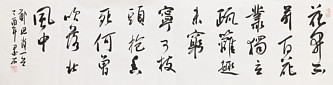 花開不
並百花
叢獨立
疏籬趣
未窮
寧可枝
頭抱香
死何曾
吹落北
風中
鄭思肖
丁酉年